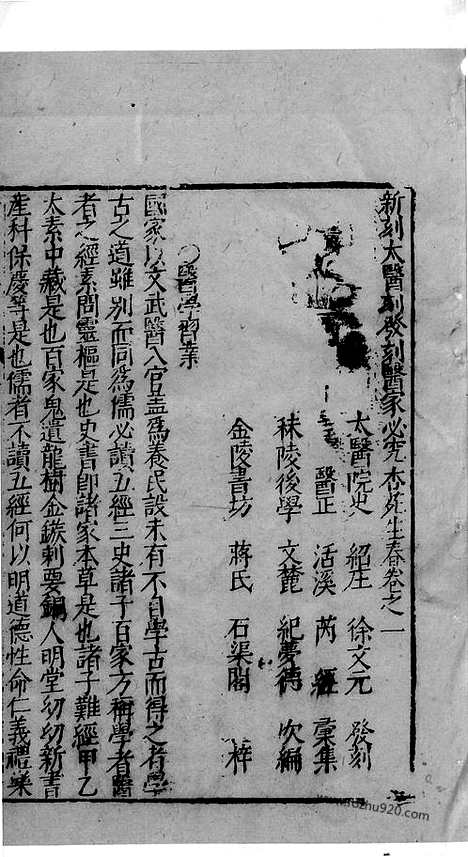 新刻太醫院發刻醫家必究杏苑生春卷之一
太醫院吏 紹庄 徐文元 發刻
醫正 活溪 芮經 彙集
秣陵後學 文麓 紀夢德 次編
金陵書坊 蔣氏 石渠閣 梓
○醫學習業
國家以文武醫入官盖爲養民設未有不自學古而得之者學
古之道雖别而同爲儒必讀五經三史諸子百家方稱學者醫
者之經素問靈樞是也史書即諸家本草是也諸子難經甲乙
太素中藏是也百家鬼遺龍樹金鏃刺要銅人明堂幼幼新書
産科保慶等是也儒者不讀五經何以明道德性命仁義禮樂
www.shuzhu920.com